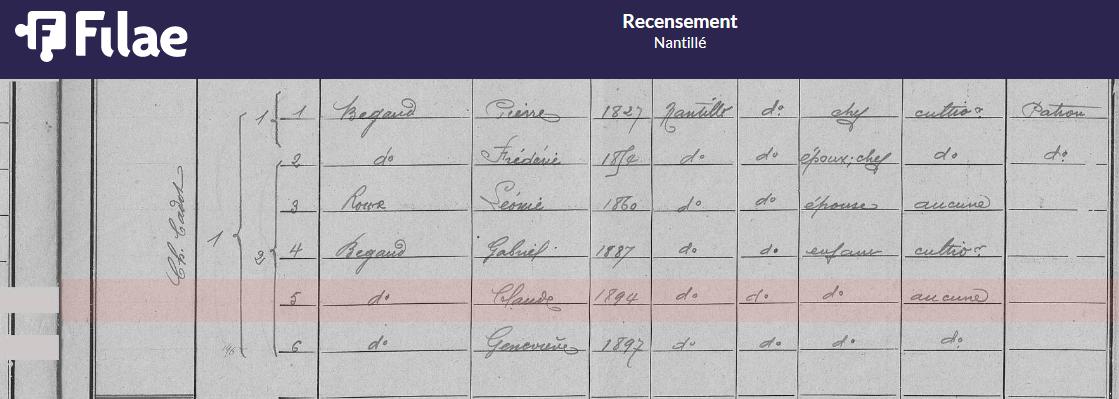 Filae
Recensement
Nantillé
Ch. Cadet
1 1 1 Begaud Pierre 1827 Nantillé do chef cultivr Patron
2 2 do Frédéric 1852 do do époux; chef do do
3 Roux Léonie 1860 do do épouse aucune
4 Begaud Gabriel 1887 do do enfant cultivr
5 do Claude 1894 do do do aucune
6 do Geneviève 1897 do do do do